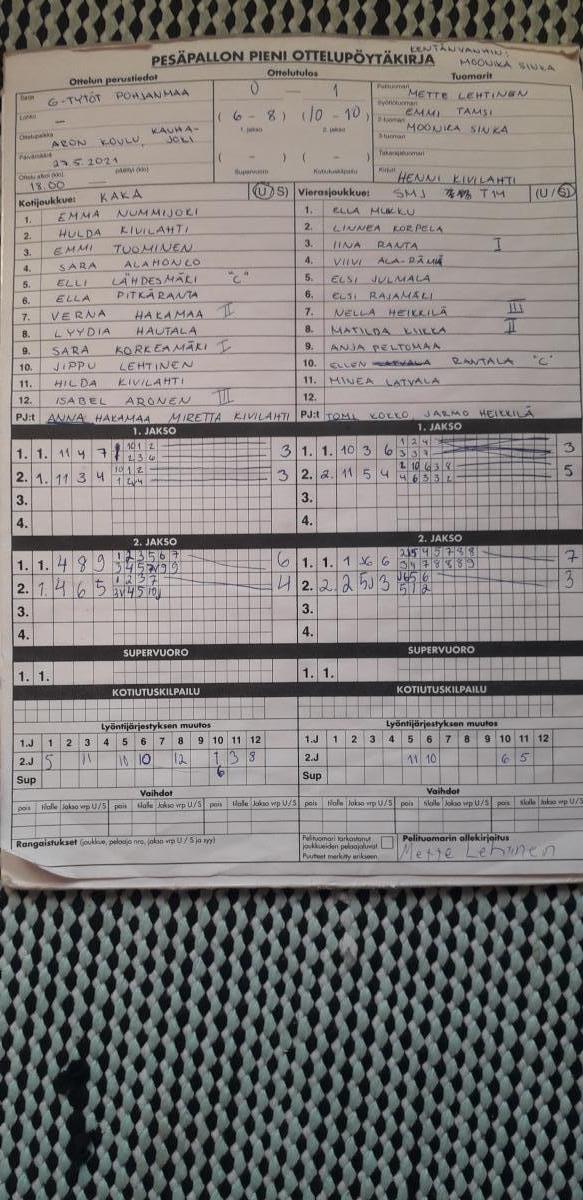 LENTÄNVANHIN:
PESÄPALLON PIENI OTTELUPÖYTÄKIRJA MOONIKA SINKA
Ottelun perustiedot
Sarja
G-TYTÖT POHJANMAA
Lohko
–
Ottelupaikka KAUHA-
ARON KOULU, JOKI
Päivämäärä
27.5.2021
Ottelu alkoi (klo) päättyi (klo)
18.00
Ottelutulos
0 — 1
( 6 - 8 ) ( 10 - 10 )
1. jakso 2. jakso
( - ) ( - )
Supervuoro Kotiutuskilpailu
Tuomarit
Pelituomari
METTE LEHTINEN
Syöttötuomari
EMMI TAMSI
2-tuomari
MOONIKA SINKA
3-tuomari
Takarajatuomari
Kirjuri
HENNI KIVILAHTI
Kotijoukkue: KAKA (U/S)
1. EMMA NUMMIJOKI
2. HULDA KIVILAHTI
3. EMMI TUOMINEN
4. SARA ALAHONCO
5. ELLI LÄHDESMÄKI "C"
6. ELLA PITKÄRANTA
7. VERNA HAKAMAA II
8. LYYDIA HAUTALA
9. SARA KORKEAMÄKI I
10. JIPPU LEHTINEN
11. HILDA KIVILAHTI
12. ISABEL ARONEN III
PJ:t ANNA HAKAMAA MIRETTA KIVILAHTI
Vierasjoukkue: SMJ T1M (U/S)
1. ELLA MUKKU
2. LINNEA KORPELA
3. IINA RANTA I
4. VIIVI ALA-RÄMI
5. ELSI JULMALA
6. ELSI RAJAMÄKI
7. NELLA HEIKKILÄ III
8. MATILDA KIIKKA II
9. ANJA PELTOMAA
10. ELLEN LATVALA RANTALA "C"
11. MINEA LATVALA
12.
PJ:t TOMI KOKKO, JARMO HEIKKILÄ
1. JAKSO
1. 1. 11 4 7 3
2. 1. 11 3 4 3
3.
4.
1. JAKSO
1. 1. 10 3 6 3
2. 2. 11 5 4 5
3.
4.
2. JAKSO
1. 1. 4 8 9 6
2. 1. 4 6 5 4
3.
4.
2. JAKSO
1. 1. 1 6 7
2. 2. 3 3
3.
4.
SUPERVUORO
1. 1.
SUPERVUORO
1. 1.
KOTIUTUSKILPAILU
KOTIUTUSKILPAILU
Lyöntijärjestyksen muutos
1.J 1 2 3 4 5 6 7 8 9 10 11 12
2.J 5 11 10 10 12 1 3 8
Sup 6
Lyöntijärjestyksen muutos
1.J 1 2 3 4 5 6 7 8 9 10 11 12
2.J 11 10 6 5
Sup
Vaihdot
pois tilalle Jakso vrp U/S pois tilalle Jakso vrp U/S pois tilalle Jakso vrp U/S
Vaihdot
pois tilalle Jakso vrp U/S pois tilalle Jakso vrp U/S pois tilalle Jakso vrp U/S
Rangaistukset (joukkue, pelaaja nro, jakso vrp U/S ja syy)
Pelituomari tarkastanut
joukkueiden pelaajaluvat
Puutteet merkitty erikseen.
Pelituomarin allekirjoitus
Mette Lehtinen